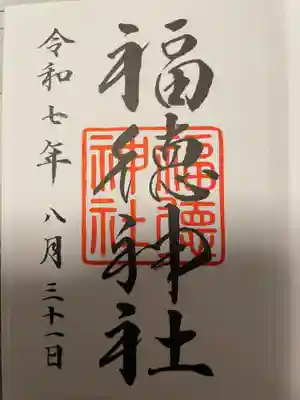 福徳神社
福德
神社
令和七年 八月 三十一日